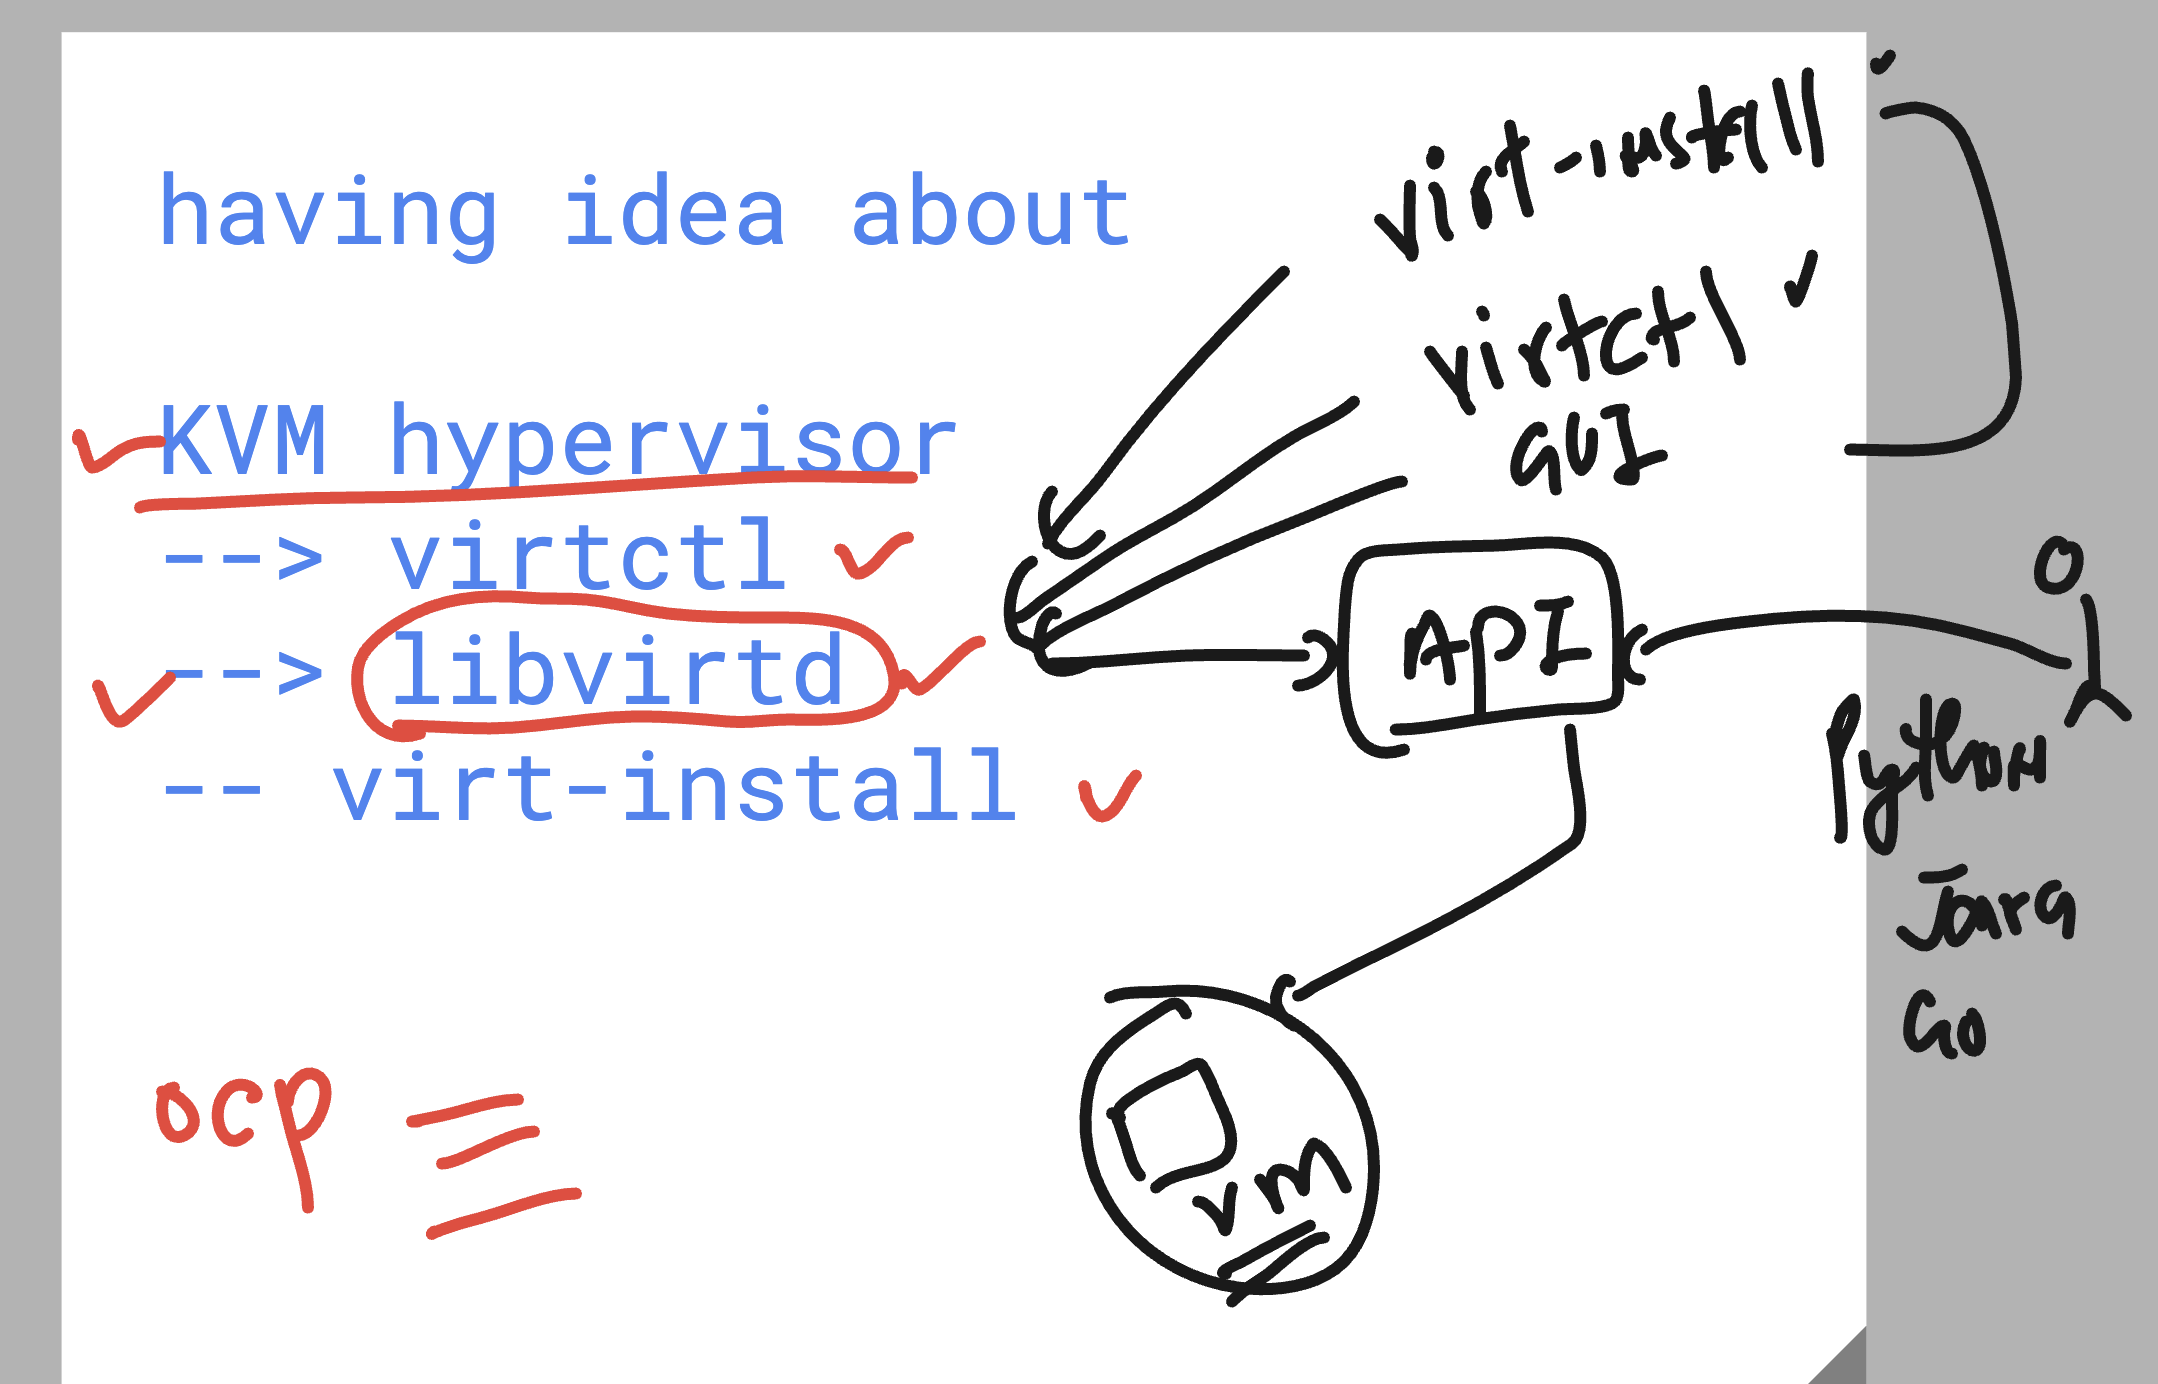 having idea about
KVM hypervisor
--> virtctl
--> libvirtd
-- virt-install
virt-install
virtctl
GUI
API
Python
Java
Go
vm
ocp